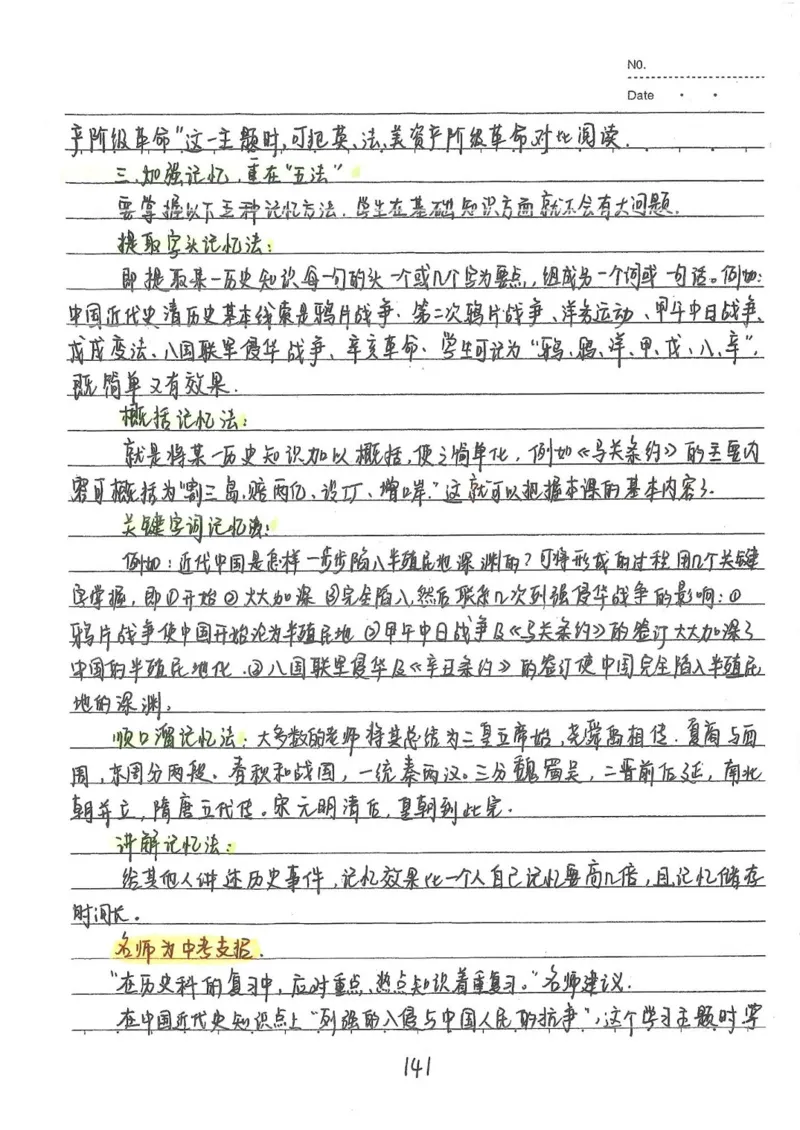 NO.
Date
产阶级革命"这一主题时,可把英、法、美资产阶级革命对比阅读.
三.加强记忆,重在"五法"
要掌握以下五种记忆方法,学生在基础知识方面就不会有大问题.
提取字头记忆法:
即提取某一历史知识每一句的头一个或几个字为要点,组成另一个词或一句话。例如:
中国近代史清历史基本线索是鸦片战争、第二次鸦片战争、洋务运动、甲午中日战争、
戊戌变法、八国联军侵华战争、辛亥革命、学生可记为"鸦、鸦、洋、甲、戊、八、辛",
既简单又有效果.
概括记忆法:
就是将某一历史知识加以概括,使之简单化,例如《马关条约》的主要内
容可概括为"割三岛、赔两亿、设厂、增口岸."这就可以把握本课的基本内容了.
关键字词记忆法:
例如:近代中国是怎样一步步陷入半殖民地深渊的?可将形成的过程用几个关键
字掌握,即①开始②大大加深③完全陷入,然后联系几次列强侵华战争的影响:①
鸦片战争使中国开始沦为半殖民地②甲午中日战争及《马关条约》的签订大大加深了
中国的半殖民地化.③八国联军侵华及《辛丑条约》的签订使中国完全陷入半殖民
地的深渊。
顺口溜记忆法:大多数的老师将其总结为三皇五帝始,尧舜禹相传.夏商与西
周,东周分两段。春秋和战国,一统秦两汉。三分魏蜀吴,二晋前后延,南北
朝并立,隋唐五代传。宋元明清后,皇朝到此完.
讲解记忆法:
给其他人讲述历史事件,记忆效果比一个人自己记忆要高几倍,且记忆储存
时间长。
名师为中考支招.
"在历史科的复习中,应对重点、热点知识着重复习。"名师建议.
在中国近代史知识点上"列强的入侵与中国人民的抗争",这个学习主题时学
141